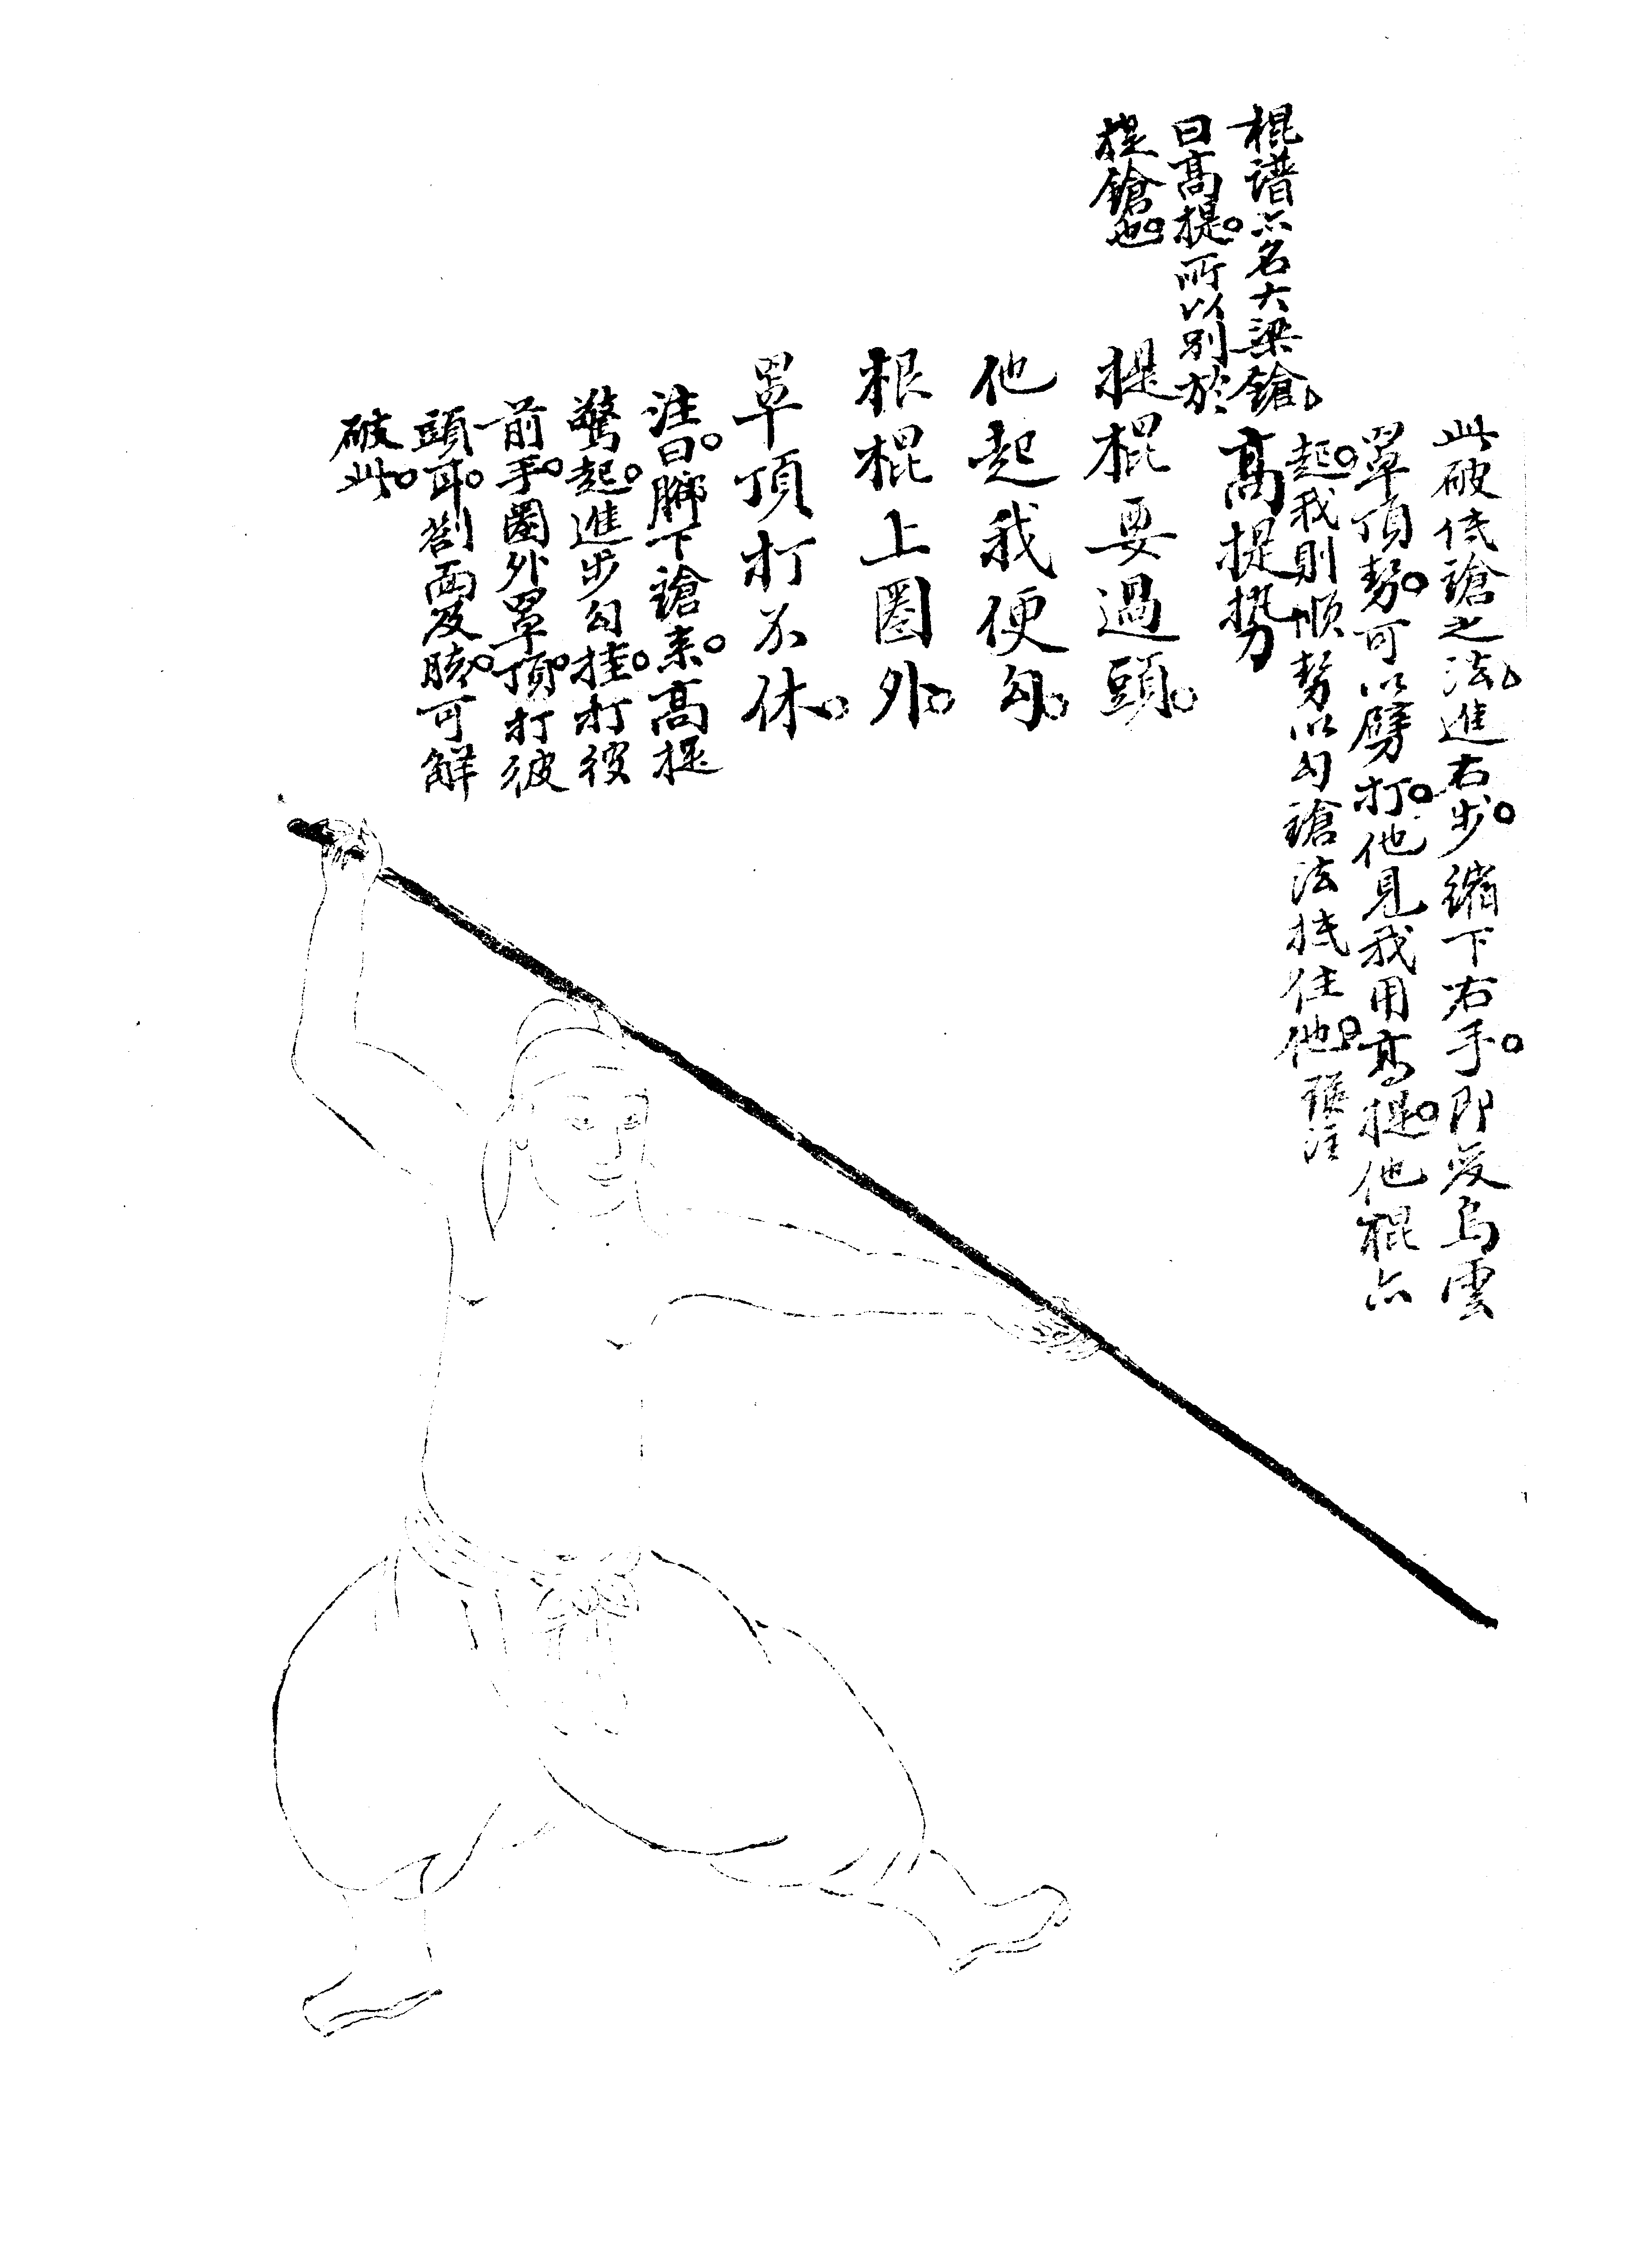 此破低鎗之法進右步。縮下右手。即变烏雲
罩頂勢。可以劈打。他見我用高提。他棍亦
起。我則順勢以勾鎗法抵住他。張注
棍譜亦名大梁鎗
曰高提。所以别於
提鎗也。
高提勢
提棍要過頭。
他起我便勾。
根棍上圈外。
罩頂打不休。
注曰。腳下鎗来。高提
驚起。進步勾挂。打彼
前手。圈外罩頂。打彼
頭耳。劄面及膝。可解
破此。